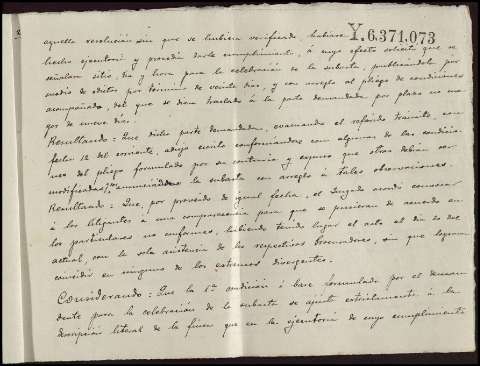 Y.6.371.073
aquella resolución sin que se hubiera verificado, habíase
hecho ejecutoria y procedía darle cumplimiento, á cuyo efecto solicita que se
señalara sitio, día y hora para la celebración de la subasta, publicándola por
medio de edictos por término de veinte días, y con arreglo al pliego de condiciones
acompañado, del que se diera traslado á la parte demandada por plazo no ma
yor de nueve días.
Resultando: Que dicha parte demandada, evacuando el referido trámite, con
fecha 12 del corriente, adujo escrito conformándose con algunas de las condicio
nes del pliego formulado por su contraria y expuso que otras debían ser
modificadas, la subasta con arreglo á tales observaciones.
Resultando: Que, por proveído de igual fecha, el Juzgado acordó convocar
á los litigantes á una comparecencia para que se pusieran de acuerdo en
los particulares no conformes, habiendo tenido lugar el acto el día de
actual, con la sola asistencia de los respectivos Procuradores, sin que lograran
coincidir en ninguno de los extremos divergentes.
Considerando: Que la 1ª condición ó base formulada por el deman
dante para la celebración de la subasta se ajusta estrictamente á la
descripción literal de la finca que en la ejecutoria de cuyo cumplimiento